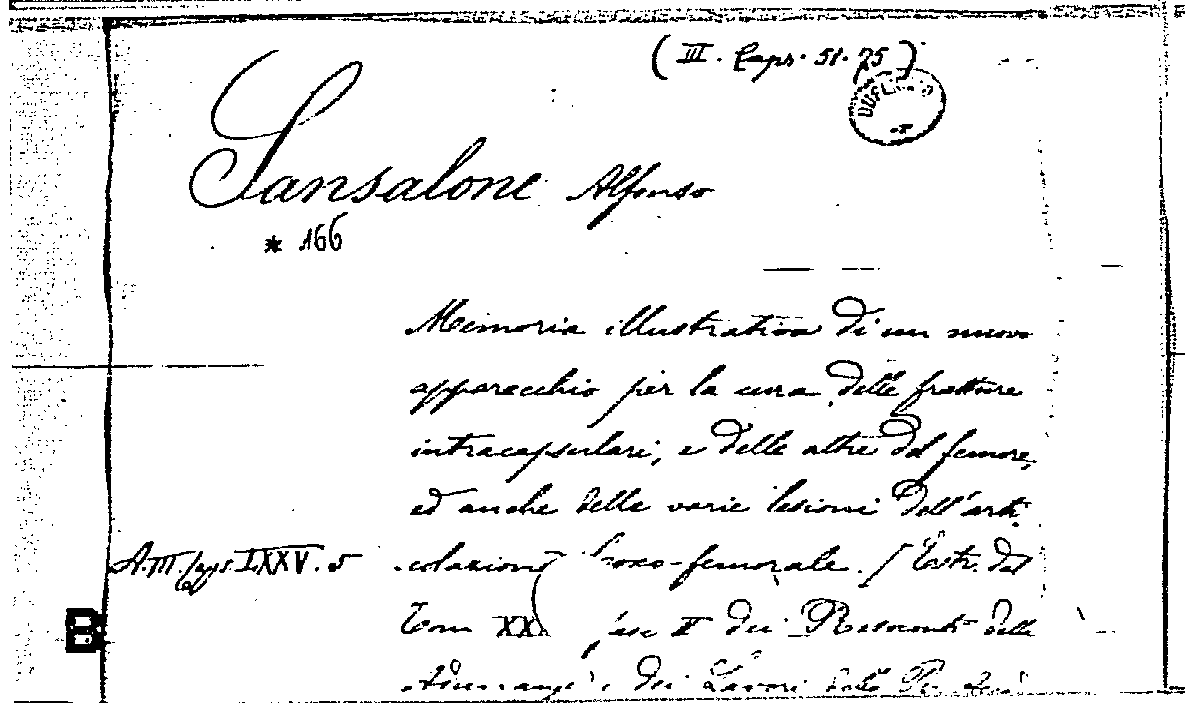 (III. Caps. 51. 75)
Sansalone Alfonso
* 166
Memoria illustrativa di un nuovo
apparecchio per la cura delle fratture
intracapsulari, e delle altre del femore,
ed anche delle varie lesioni dell'arti
A. III. Caps. LXXV. 5
colazione coxo-femorale. / Estr. dal
Tom XX fasc II dei Resoconti delle
Adunanze e dei Lavori della
B